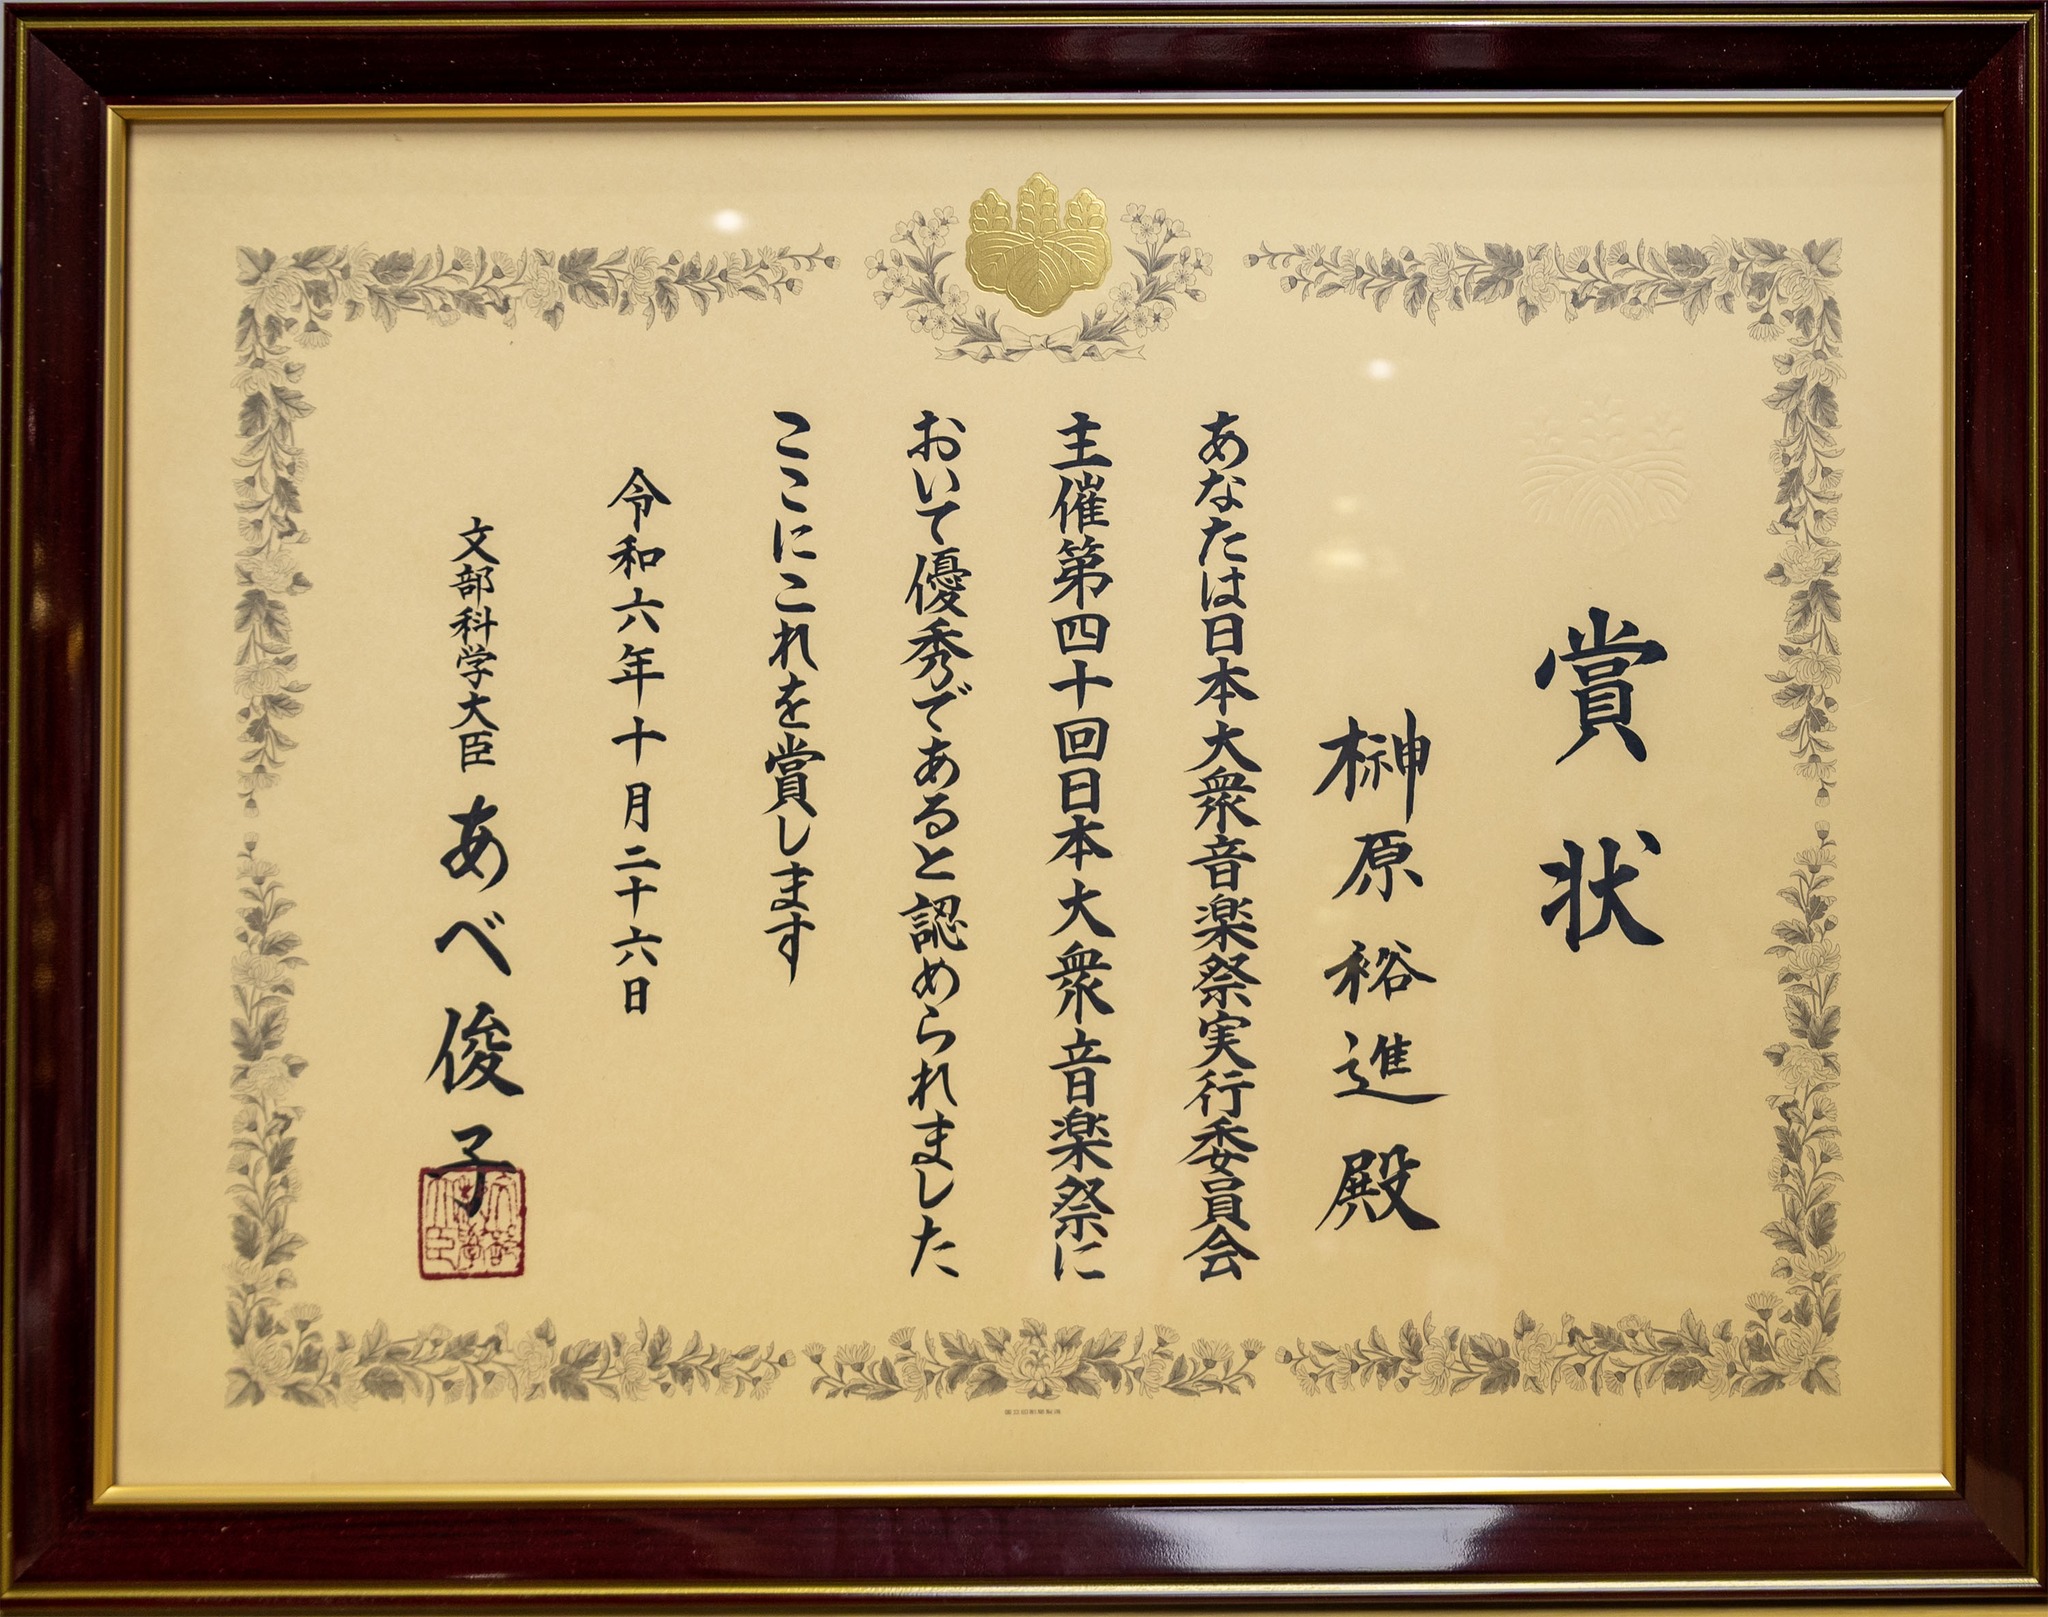 賞状
榊原裕進殿
あなたは日本大衆音楽祭実行委員会
主催第四十回日本大衆音楽祭に
おいて優秀であると認められました
ここにこれを賞します
令和六年十月二十六日
文部科学大臣 あべ俊子